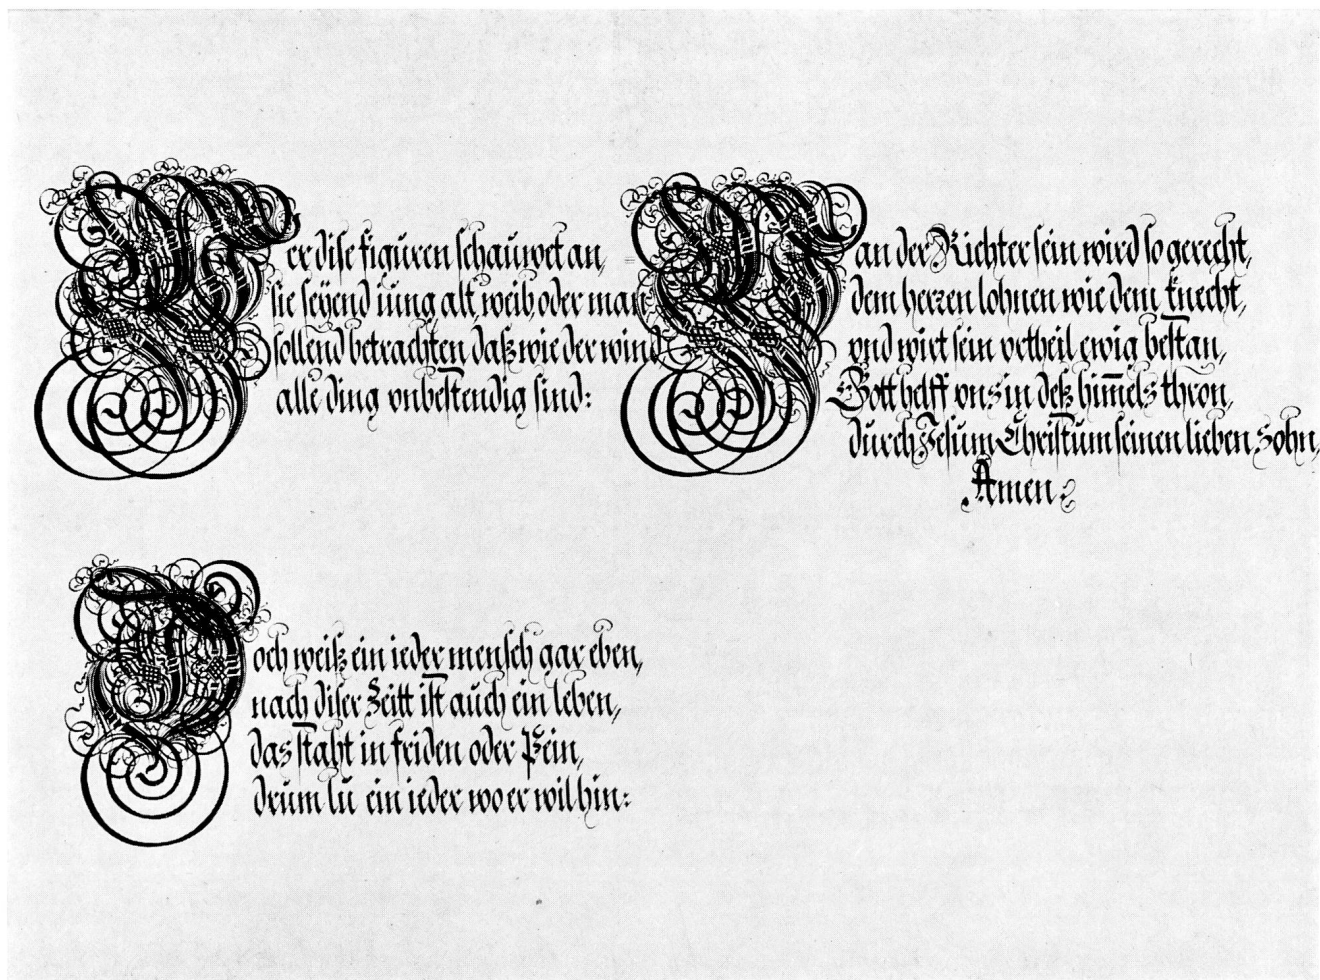 Wer dise figuren schauwet an,
sie seyend iung alt, weib, oder man
sollend betrachten daß wie der wind
alle ding vnbestendig sind:
Doch weiß ein ieder mensch gar eben,
nach diser Zeitt ist auch ein leben,
das staht in friden oder Pein,
drum lu ein ieder wo er wil hin:
Wan der Richter sein wird so gerecht,
dem herzen lohnen wie dem knecht,
vnd wirt sein vrtheil ewig bestan,
Gott helff vns in deß him̄els thron,
durch Jesum Christum seinen lieben Sohn,
Amen